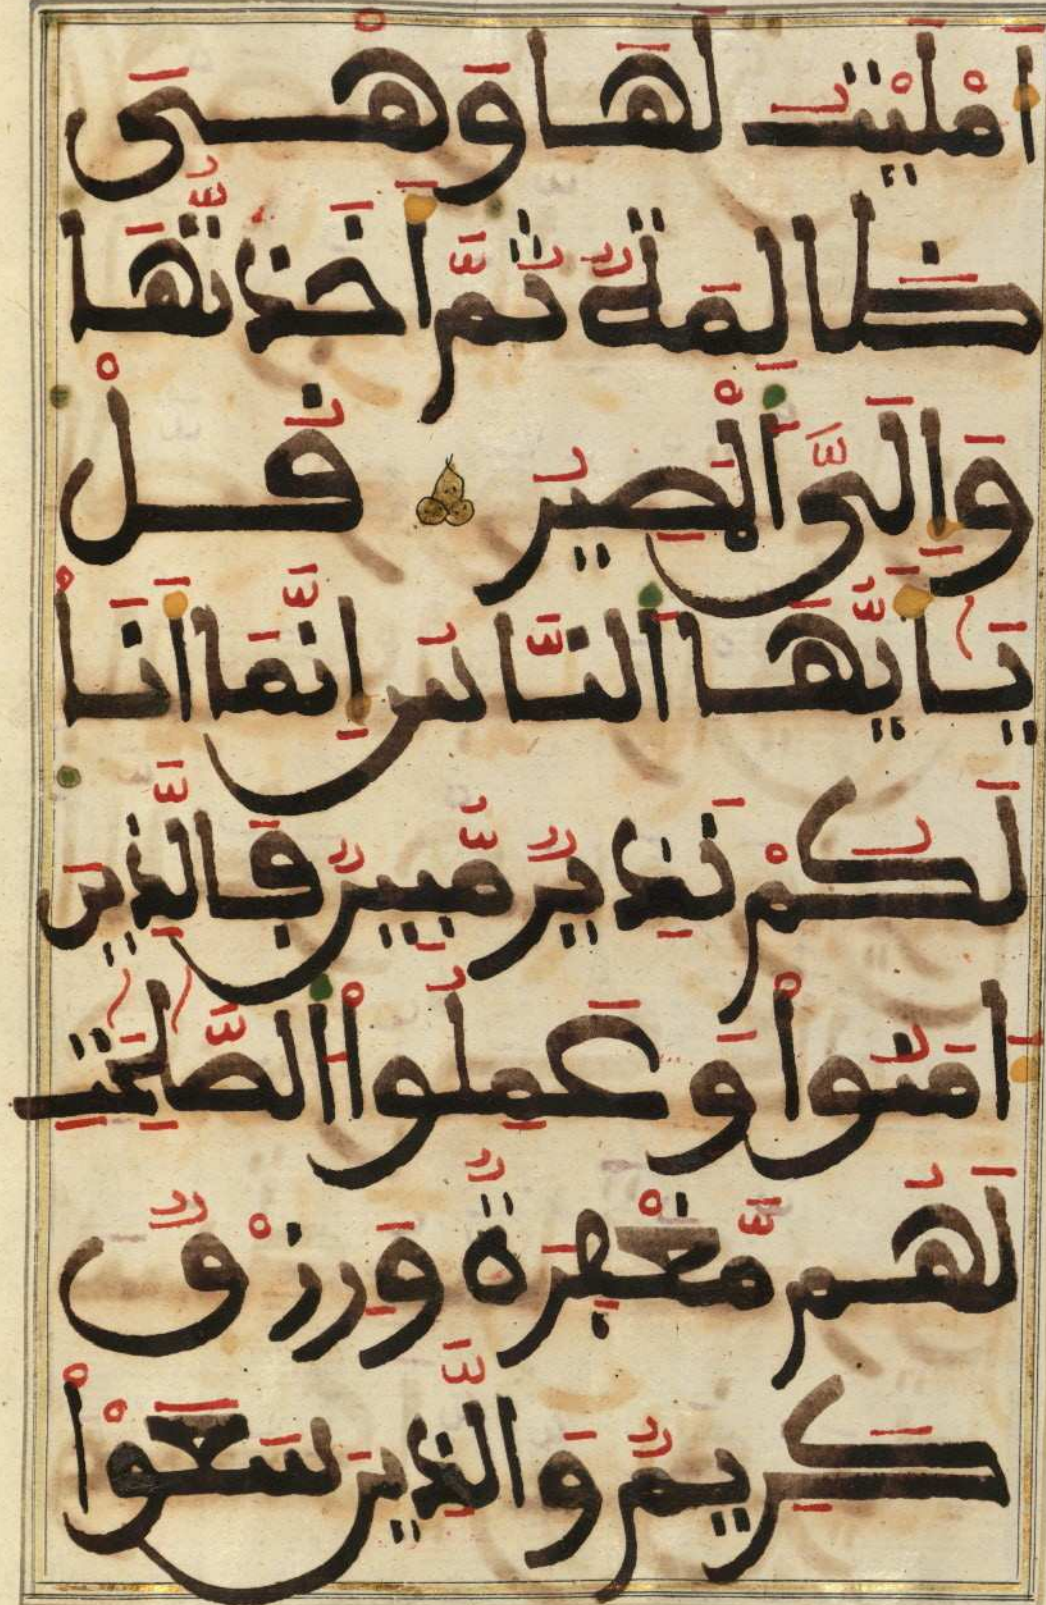 أَمْلَيْتُ لَهَا وَهْىَ
ظَالِمَةٌ ثُمَّ أَخَذتُّهَا
وَإِلَىَّ اَ۬لْمَصِيرُ قُلْ
يَٰٓأَيُّهَا اَ۬لنَّاسُ إِنَّمَا أَنَا
لَكُمْ نَذِيرٌ مُّبِينٌ فَالذِينَ
ءَامَنُواْ وَعَمِلُواْ اُ۬لصَّٰلِحَٰتِ
لَهُم مَّغْفِرَةٌ وَرِزْقٌ
كَرِيمٌ وَالذِينَ سَعَوْاْ